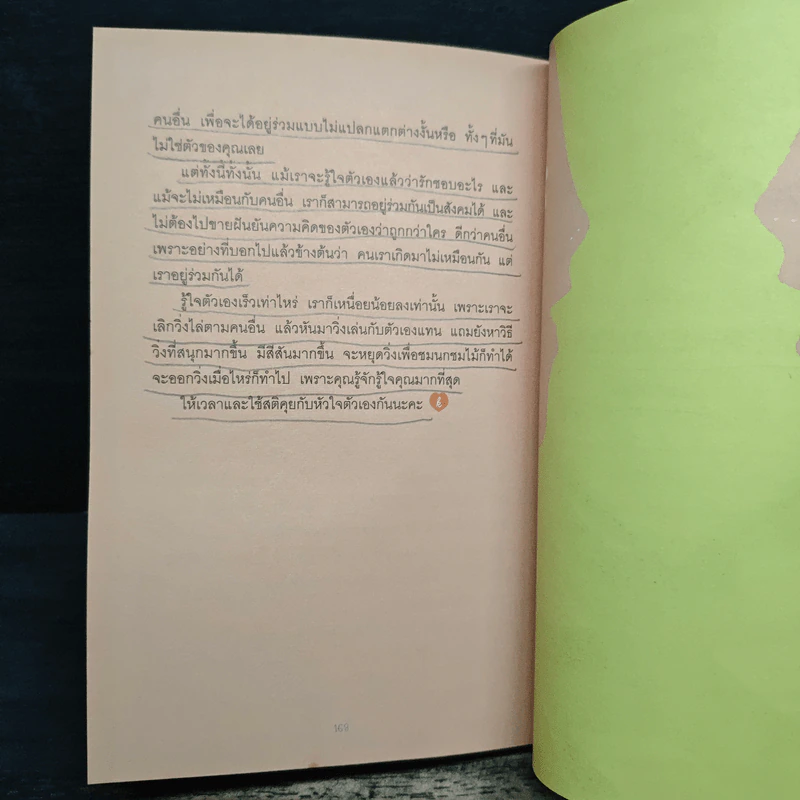 คนอื่น เพื่อจะได้อยู่ร่วมแบบไม่แปลกแตกต่างงั้นหรือ ทั้งๆ ที่มัน
ไม่ใช่ตัวของคุณเลย
แต่ทั้งนี้ทั้งนั้น แม้เราจะรู้ใจตัวเองแล้วว่ารักชอบอะไร และ
แม้จะไม่เหมือนกับคนอื่น เราก็สามารถอยู่ร่วมกันเป็นสังคมได้ และ
ไม่ต้องไปขายฝันยันความคิดของตัวเองว่าถูกกว่าใคร ดีกว่าคนอื่น
เพราะอย่างที่บอกไปแล้วข้างต้นว่า คนเราเกิดมาไม่เหมือนกัน แต่
เราอยู่ร่วมกันได้
รู้ใจตัวเองเร็วเท่าไหร่ เราก็เหนื่อยน้อยลงเท่านั้น เพราะเราจะ
เลิกวิ่งไล่ตามคนอื่น แล้วหันมาวิ่งเล่นกับตัวเองแทน แถมยังหาวิธี
วิ่งที่สนุกมากขึ้น มีสีสันมากขึ้น จะหยุดวิ่งเพื่อชมนกชมไม้ก็ทำได้
จะออกวิ่งเมื่อไหร่ก็ทำไป เพราะคุณรู้จักรู้ใจคุณมากที่สุด
ให้เวลาและใช้สติคุยกับหัวใจตัวเองกันนะคะ
169